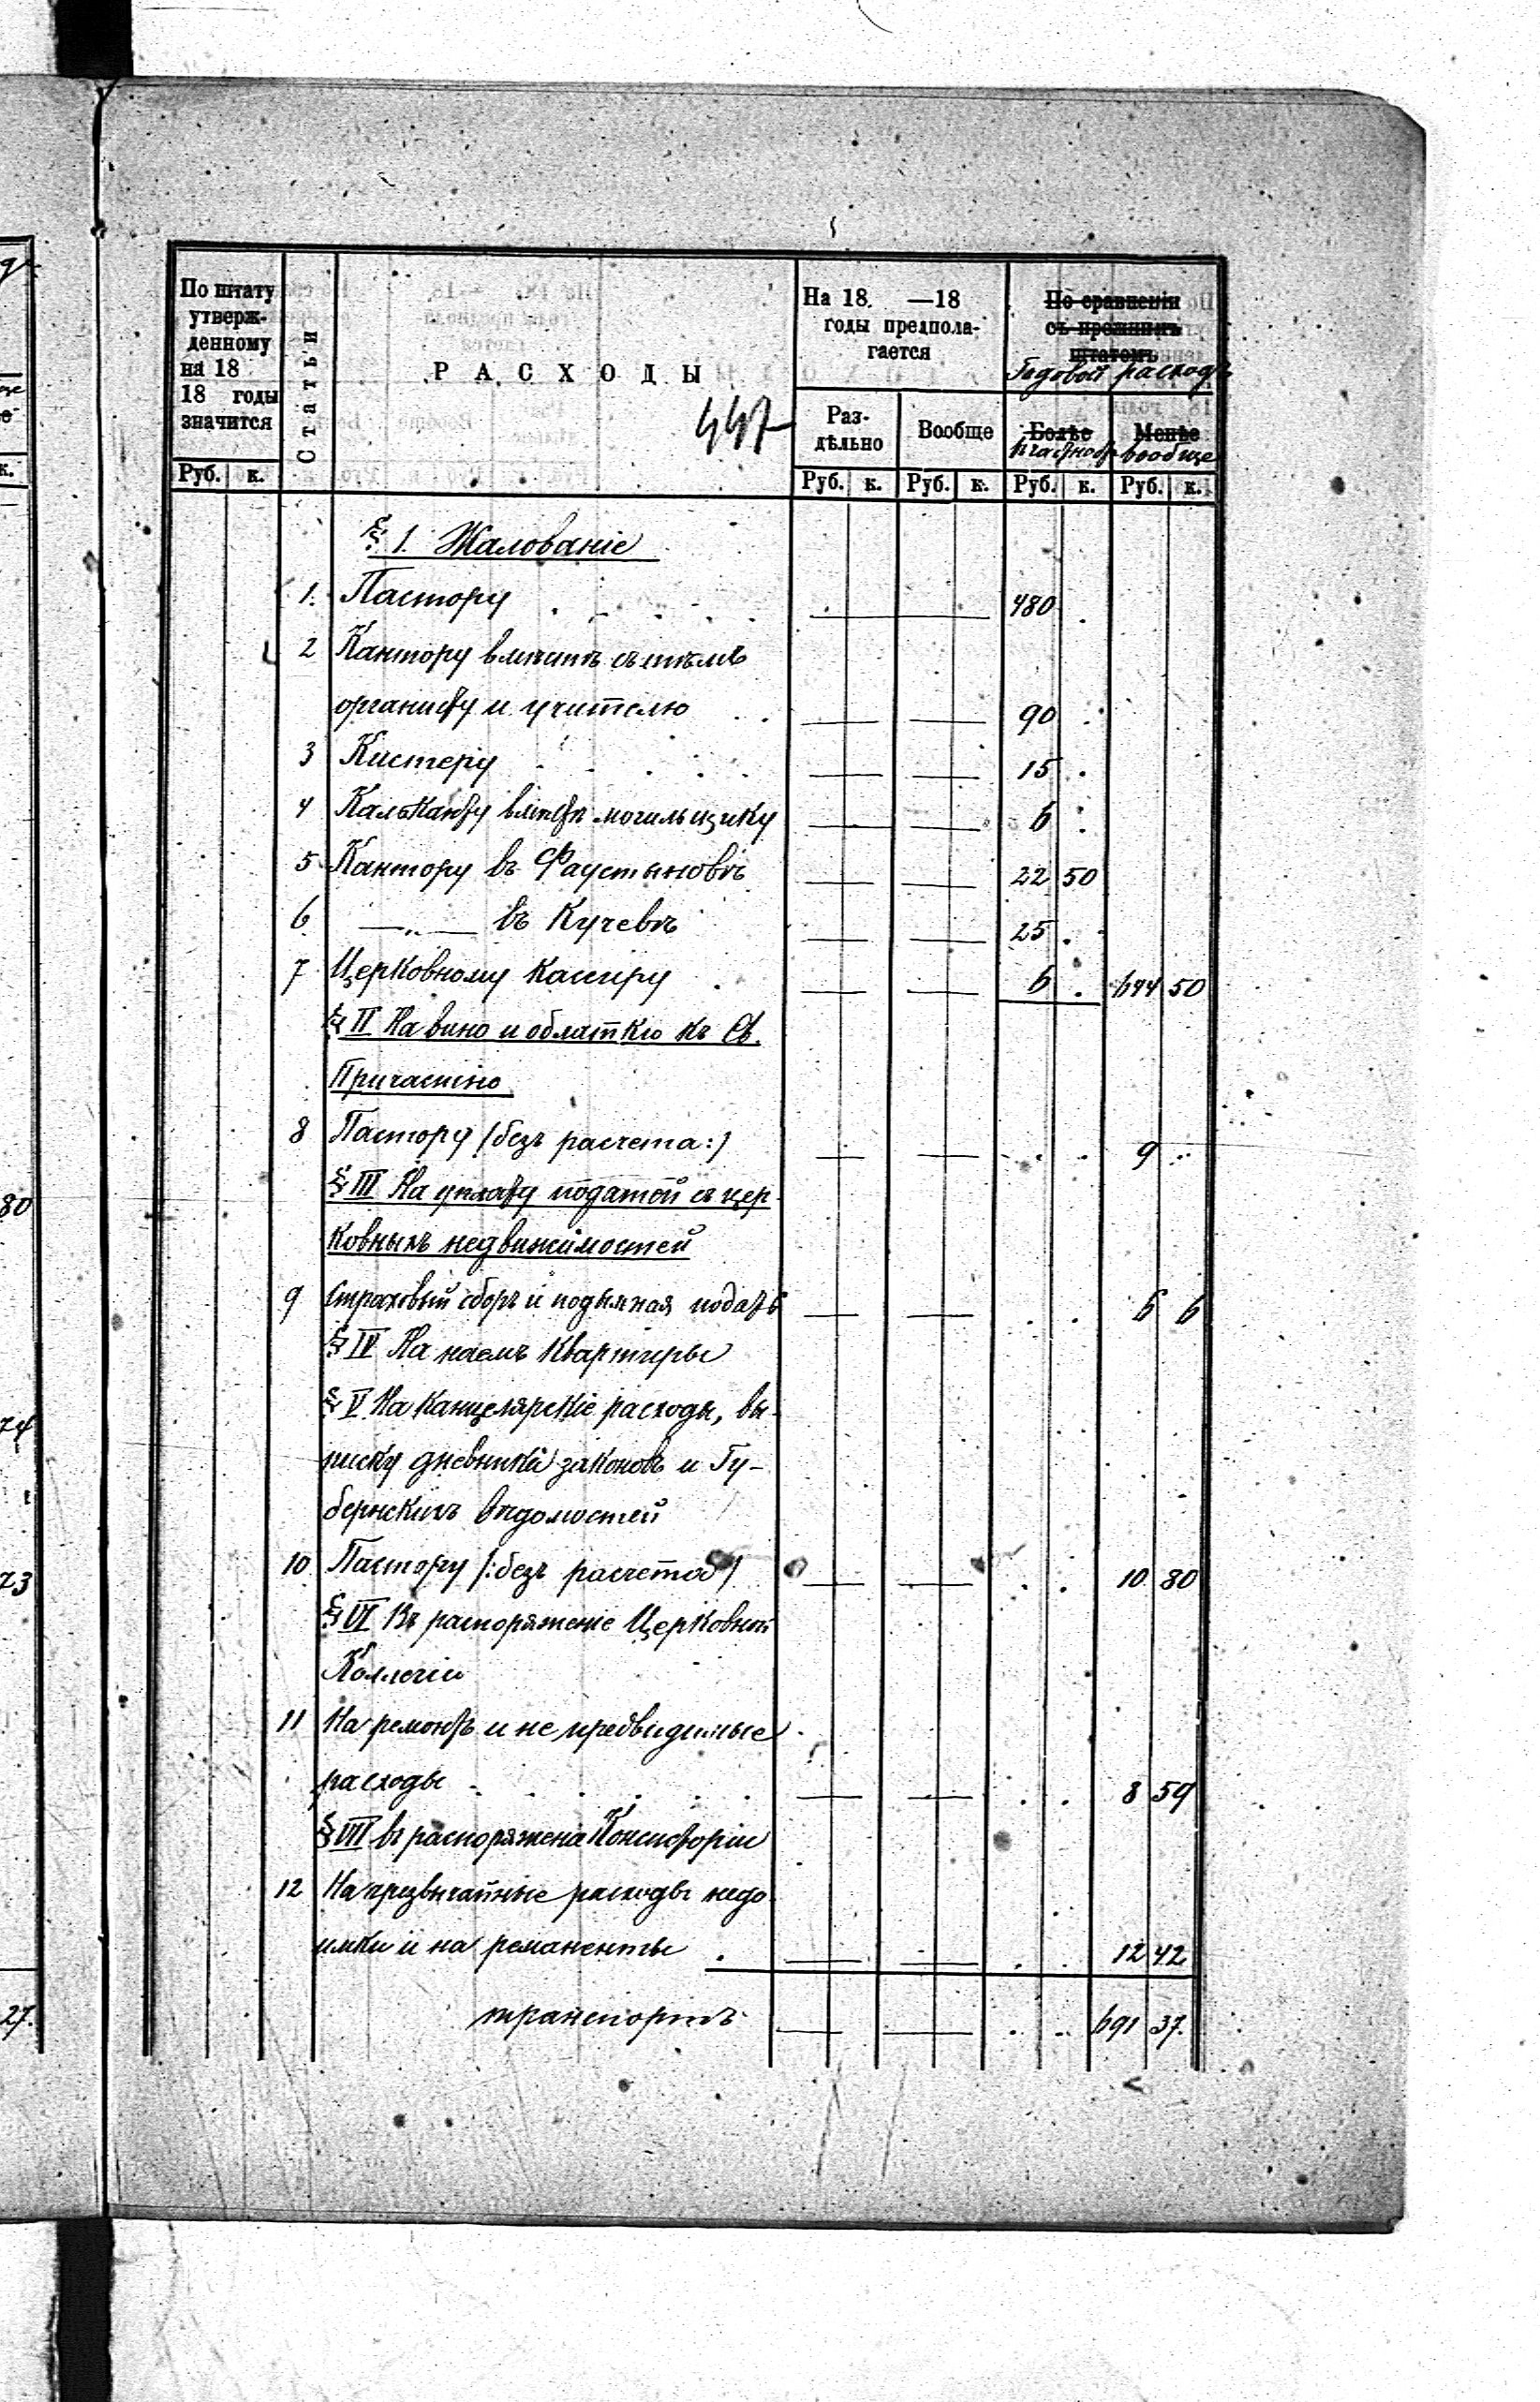 По штату
утверж-
денному
на 18
18 годы
значится
Руб. к.
Статьи
РАСХОДЫ
447
На 18 —18
годы предпола-
гается
Раз-
дѣльно
Вообще
По сравненіи
съ прежнимъ
штатомъ
Годовой расходъ
Болѣе Менѣе
вообще
Руб. к. Руб. к. Руб. к. Руб. к.
§ 1. Жалованіе
1. Пастору 480
2 Кантору вмѣстѣ съ тѣмъ
органисту и учителю 90
3 Кистеру 15
4 Кальканту вмѣстѣ могильщику 6
5 Кантору въ Фаустыновѣ 22 50
6 —„— въ Кучевѣ 25
7 Церковному кассиру 6 644 50
§ II На вино и облатки къ Св.
Причастію
8 Пастору (безъ расчета:) 9
§ III На уплату податей съ цер-
ковныхъ недвижимостей
9 Страховый сборъ и подымная подать 6 6
§ IV На наемъ квартиры
§ V На канцелярскіе расходы, вы-
писку дневника законовъ и Гу-
бернскихъ Вѣдомостей
10 Пастору (:безъ расчетов) 10 80
§ VI Въ распоряженіе Церковной
Коллегіи
11 На ремонтъ и не предвидимые
расходы 8 59
§ VII въ распоряжена Консисторіи
12 На чрезвычайные расходы недо
имки и на ременанты 12 42
транспортъ 691 37.
80
74
73
27.